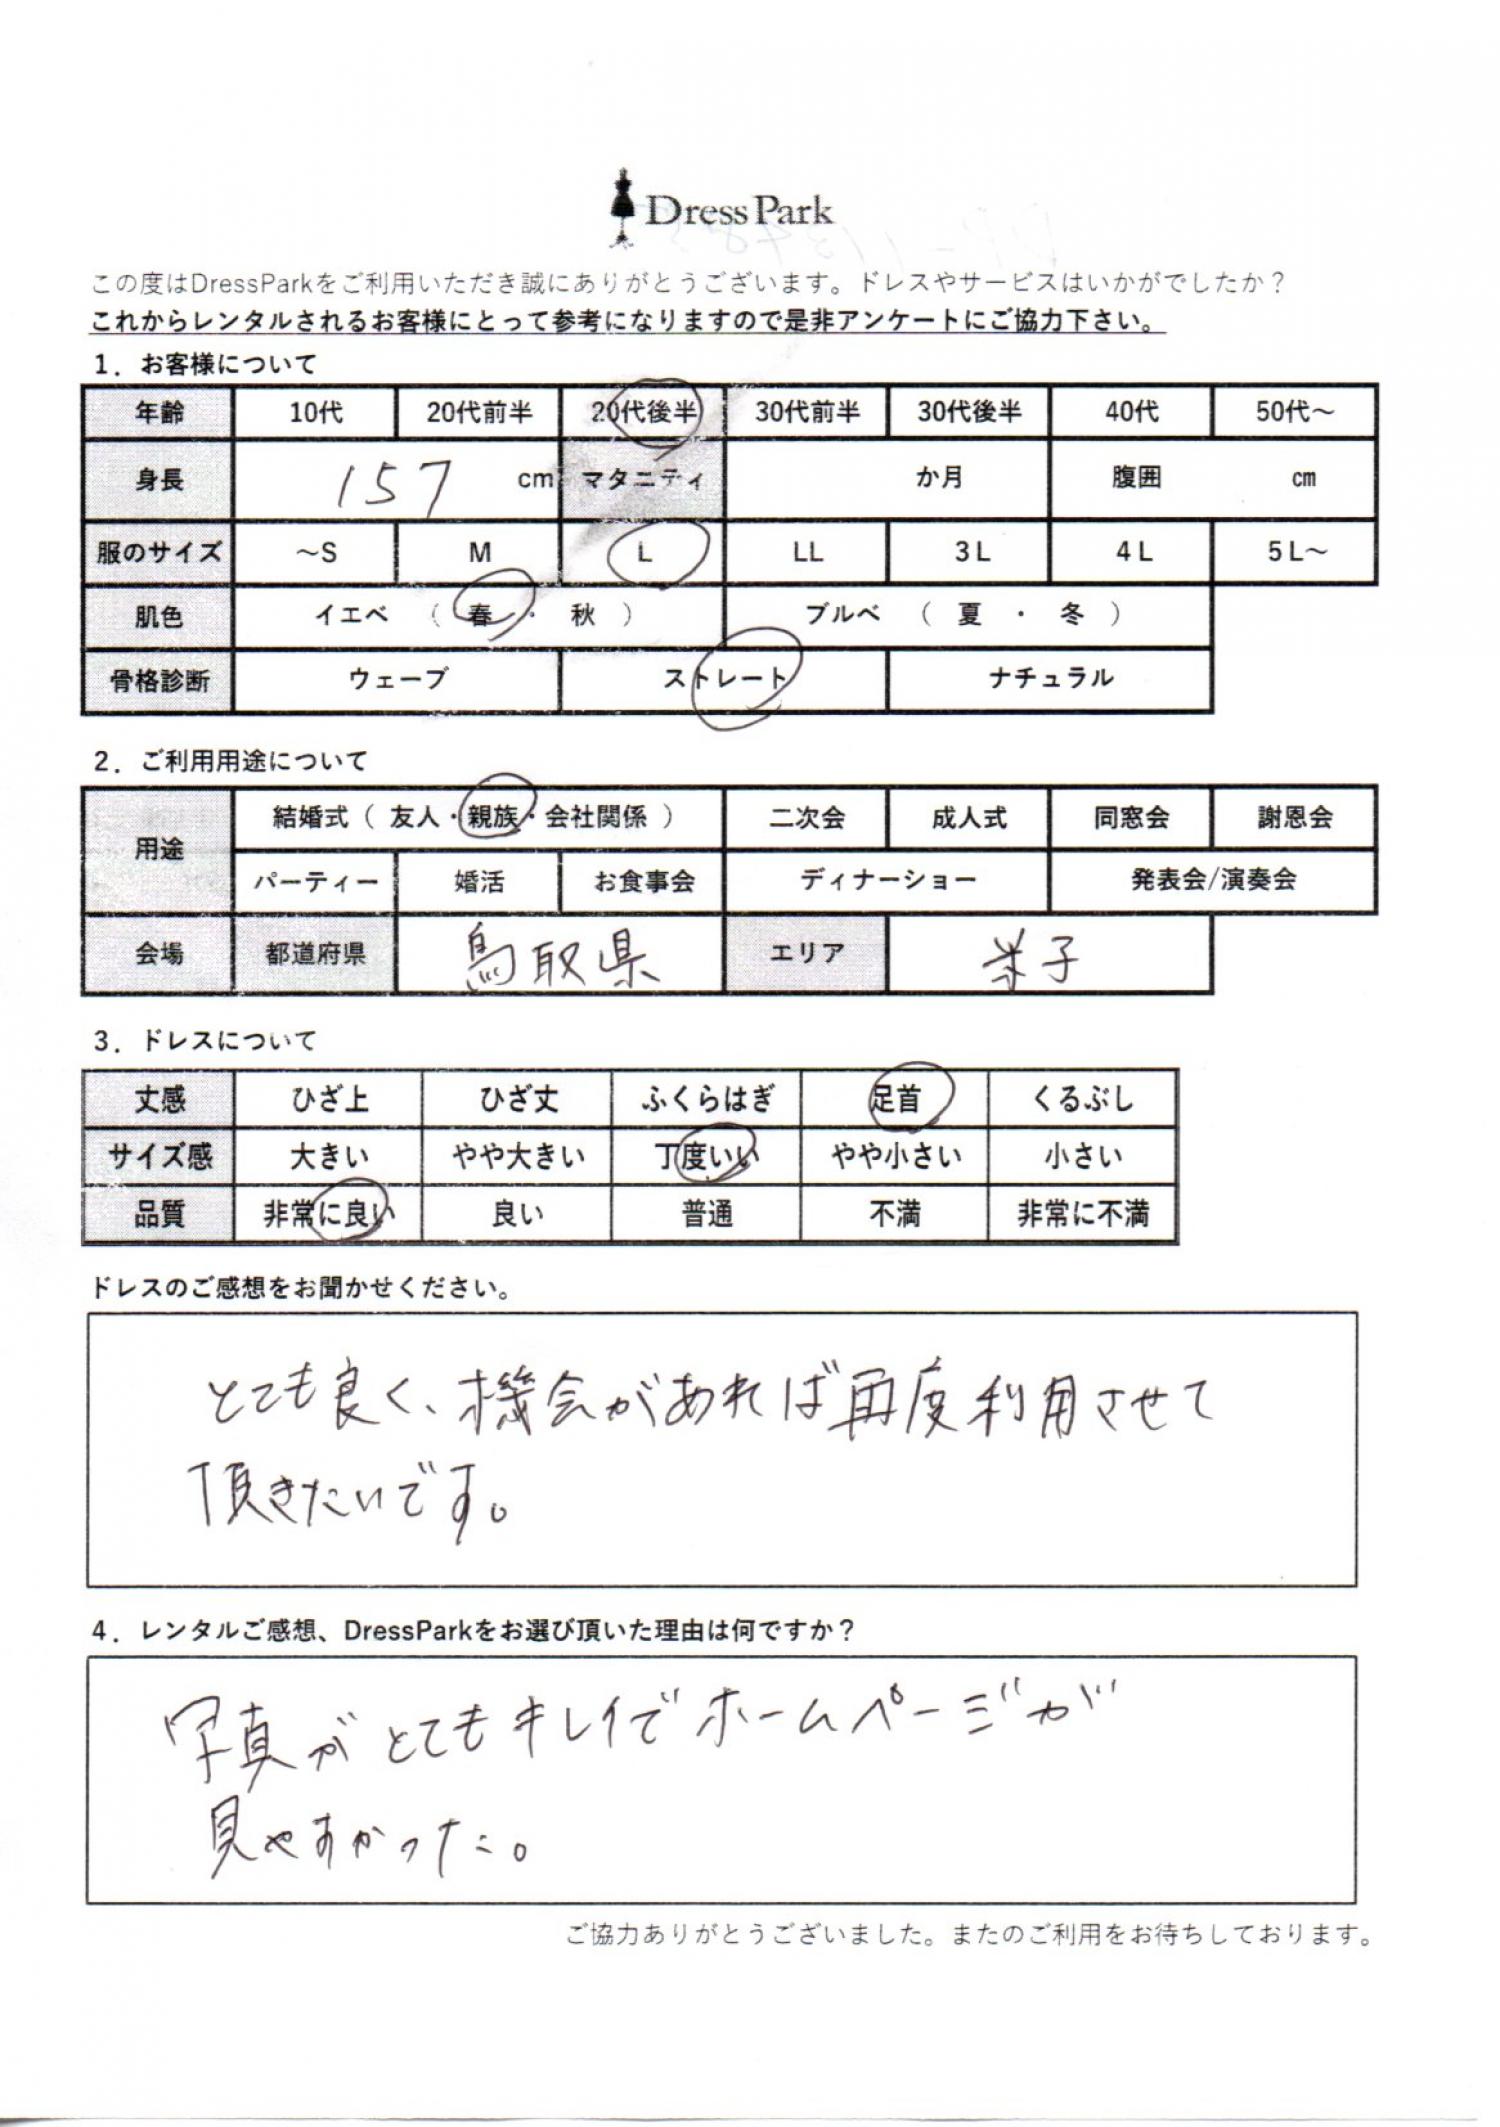 Dress Park
この度はDressParkをご利用いただき誠にありがとうございます。ドレスやサービスはいかがでしたか？
これからレンタルされるお客様にとって参考になりますので是非アンケートにご協力下さい。
1．お客様について
年齢 10代 20代前半 20代後半 30代前半 30代後半 40代 50代～
身長 157 cm マタニティ か月 腹囲 cm
服のサイズ ～S M L LL 3L 4L 5L～
肌色 イエベ （ 春 ・ 秋 ） ブルベ （ 夏 ・ 冬 ）
骨格診断 ウェーブ ストレート ナチュラル
2．ご利用用途について
用途 結婚式（ 友人・親族・会社関係 ） 二次会 成人式 同窓会 謝恩会
パーティー 婚活 お食事会 ディナーショー 発表会/演奏会
会場 都道府県 鳥取県 エリア 米子
3．ドレスについて
丈感 ひざ上 ひざ丈 ふくらはぎ 足首 くるぶし
サイズ感 大きい やや大きい 丁度いい やや小さい 小さい
品質 非常に良い 良い 普通 不満 非常に不満
ドレスのご感想をお聞かせください。
とても良く、機会があれば再度利用させて
頂きたいです。
4．レンタルご感想、DressParkをお選び頂いた理由は何ですか？
写真がとてもキレイでホームページが
見やすかった。
ご協力ありがとうございました。またのご利用をお待ちしております。